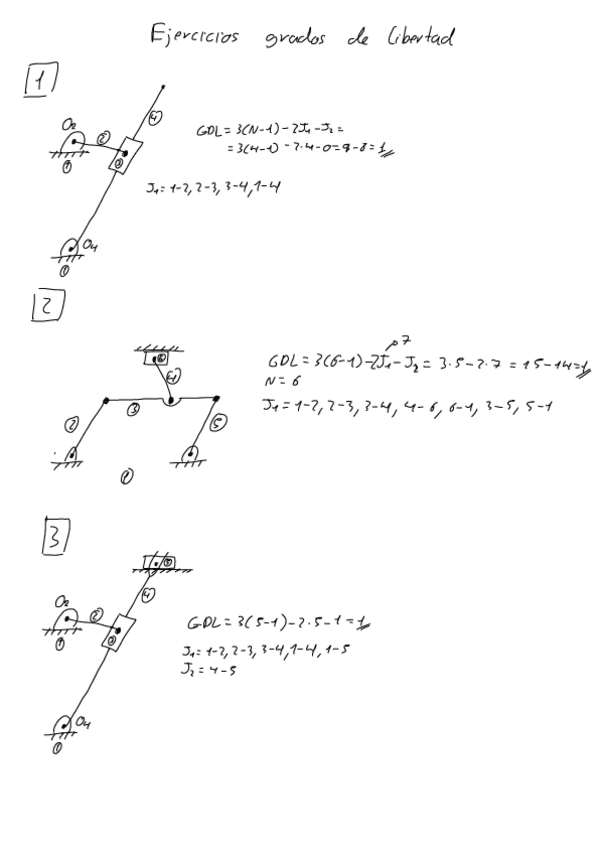 Ejercicios grados de libertad
1
4
O2
2
3
1
GDL = 3(N-1) - 2J1 - J2 =
= 3(4-1) - 2·4 - 0 = 9 - 8 = 1
J1 = 1-2, 2-3, 3-4, 1-4
O4
1
2
7
6
GDL = 3(6-1) - 2J1 - J2 = 3·5 - 2·7 = 15 - 14 = 1
4
N = 6
3
J1 = 1-2, 2-3, 3-4, 4-6, 6-1, 3-5, 5-1
2
5
1
3
5
4
O2
2
3
1
GDL = 3(5-1) - 2·5 - 1 = 1
J1 = 1-2, 2-3, 3-4, 1-4, 1-5
J2 = 4-5
O4
1